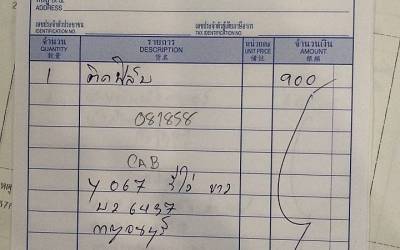 ADDRESS
เลขประจำตัวประชาชน
IDENTIFICATION NO.
เลขประจำตัวผู้เสียภาษีอากร
TAX. IDENTIFICATION NO.
จำนวน รายการ หน่วยละ จำนวนเงิน
QUANTITY DESCRIPTION UNIT PRICE AMOUNT
數量 貨名 備註 銀碼
1 ติดฟิล์ม 900
081858
CAB
067 ขาว
6437
กาญจนบุรี